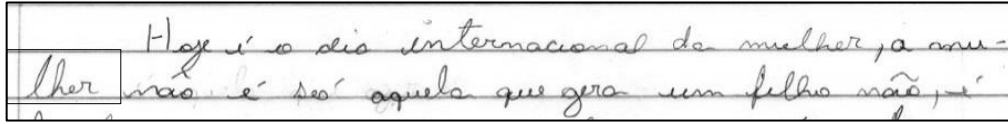 Hoje é o dia internacional da mulher, a mu-
lher não é só aquela que gera um filho não, é